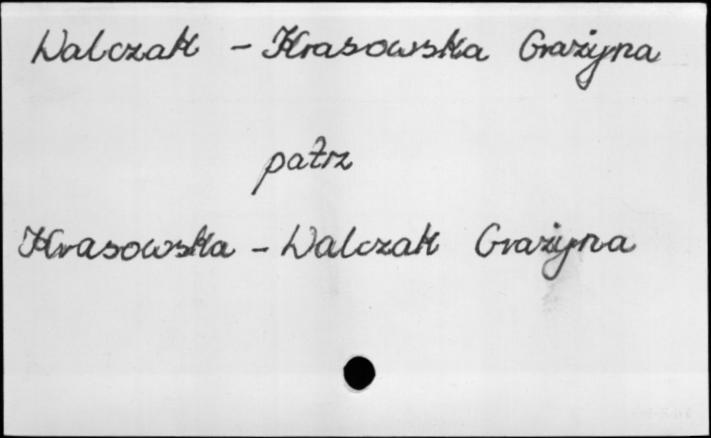 Walczak - Krasowska Grażyna
patrz
Krasowska - Walczak Grażyna